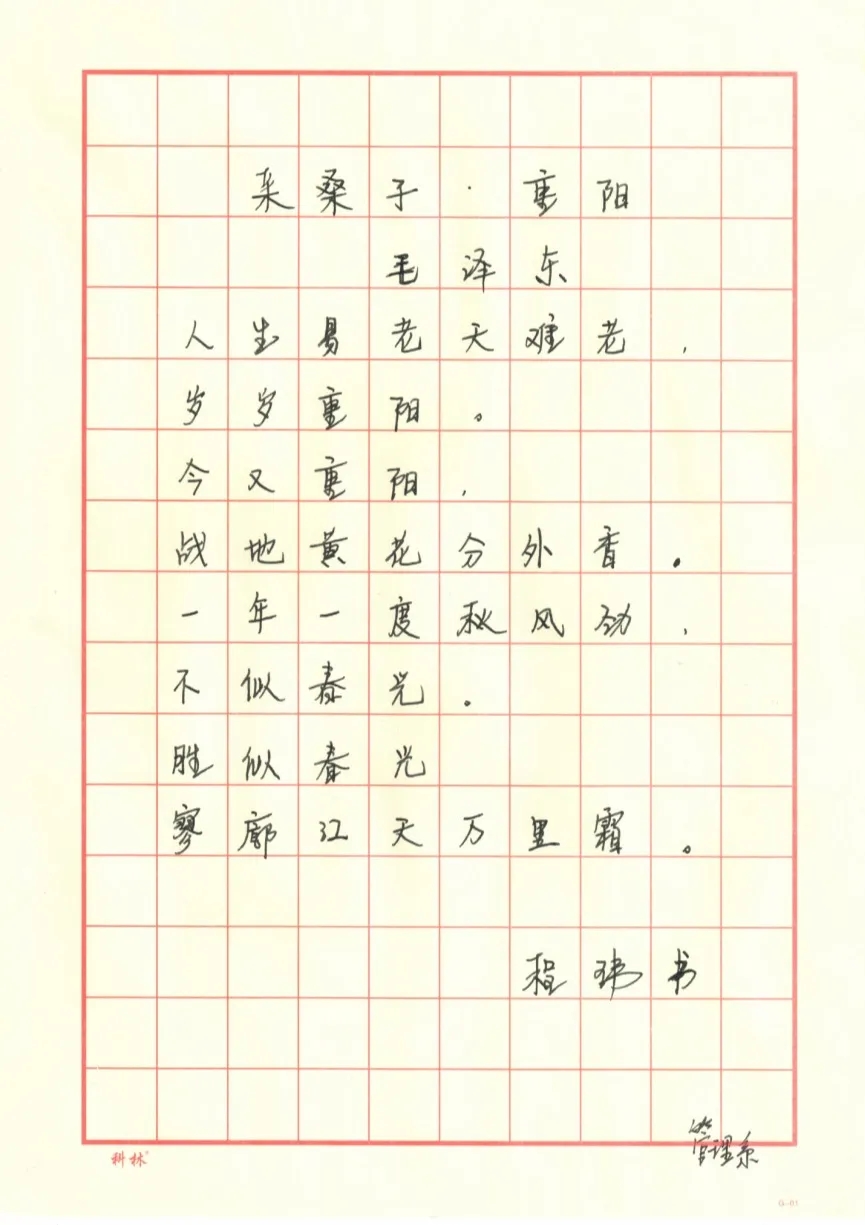 采桑子·重阳
毛泽东
人生易老天难老,
岁岁重阳。
今又重阳,
战地黄花分外香。
一年一度秋风劲,
不似春光。
胜似春光
寥廓江天万里霜。
程玮书
管理系
科林
G-01